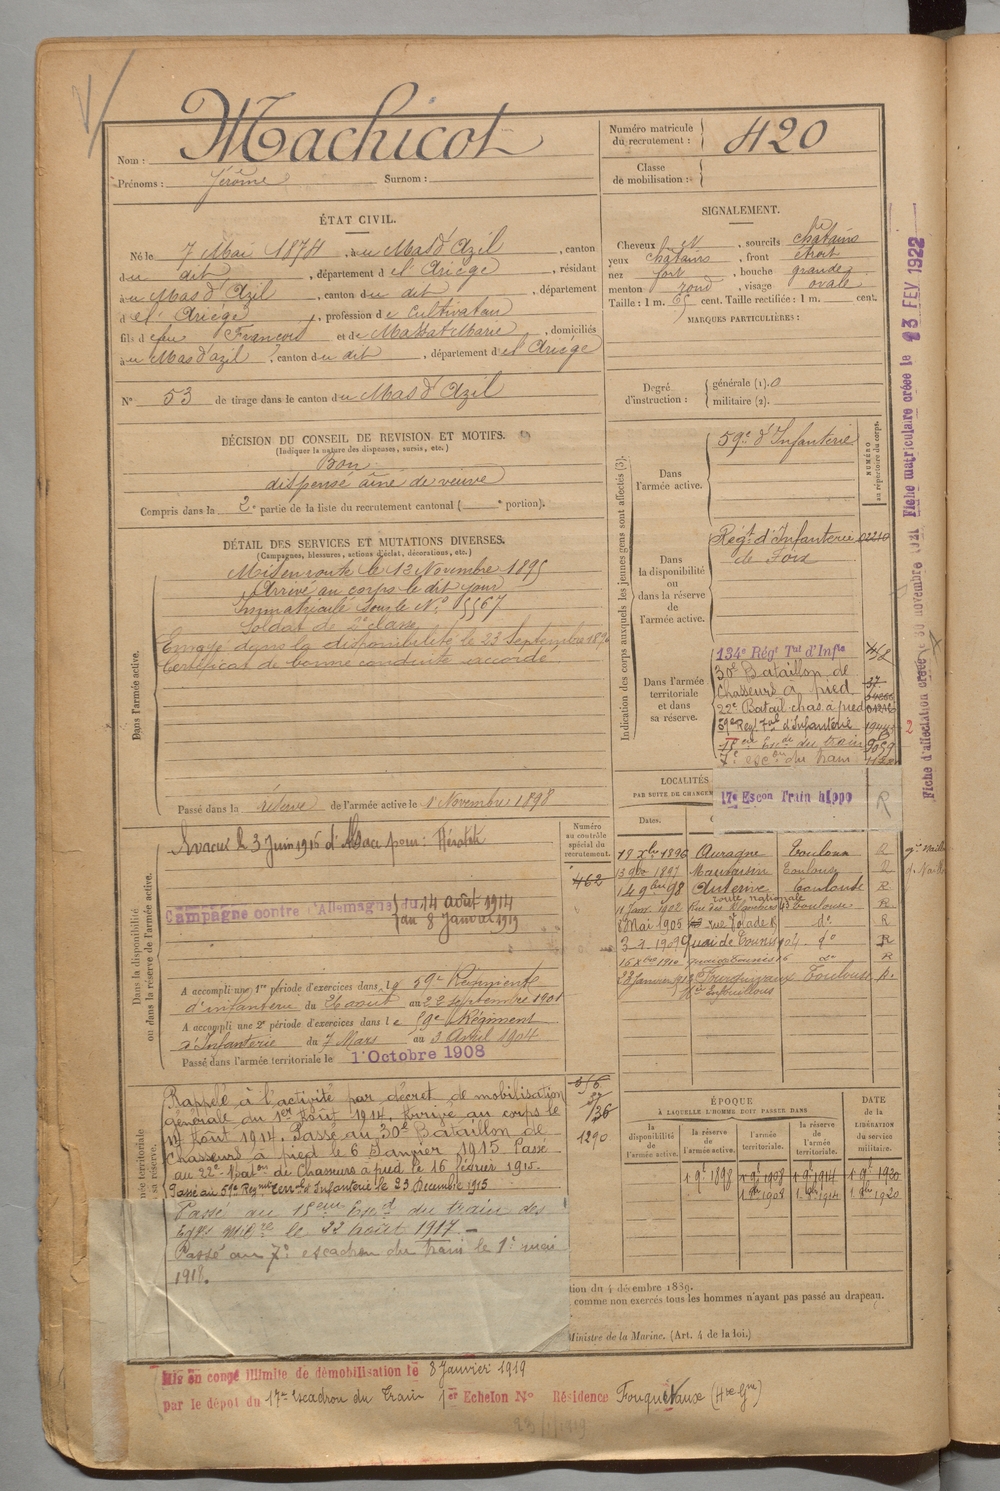 Nom : Machicot
Prénoms : Jérôme Surnom :
Numéro matricule du recrutement : 420
Classe de mobilisation :
ÉTAT CIVIL.
Né le 7 Mai 1874, au Mas d'Azil, canton
du dit, département de l'Ariège, résidant
au Mas d'Azil, canton du dit, département
de l'Ariège, profession de Cultivateur
fils de feu François et de Massat Marie, domiciliés
au Mas d'azil, canton du dit, département de l'Ariège
N° 53 de tirage dans le canton du Mas d'Azil
DÉCISION DU CONSEIL DE REVISION ET MOTIFS.
(Indiquer la nature des dispenses, sursis, etc.)
Bon
dispensé aîné de veuve
Compris dans la 2e partie de la liste du recrutement cantonal ( e portion).
SIGNALEMENT.
Cheveux, sourcils châtains
yeux châtains, front étroit
nez fort, bouche grande
menton rond, visage ovale
Taille : 1 m. 65 cent. Taille rectifiée : 1 m. cent.
MARQUES PARTICULIÈRES :
Degré d'instruction : générale (1). 0
militaire (2).
DÉTAIL DES SERVICES ET MUTATIONS DIVERSES.
(Campagnes, blessures, actions d'éclat, décorations, etc.)
Dans l'armée active.
Mis en route le 13 Novembre 1895
Arrivé au corps le dit jour
Immatriculé sous le N° 5567
Soldat de 2e classe
Envoyé dans la disponibilité le 23 Septembre 1896
Certificat de bonne conduite accordé
Passé dans la réserve de l'armée active le 1er Novembre 1898
Indication des corps auxquels les jeunes gens sont affectés (3).
NUMÉRO au répertoire du corps.
Dans l'armée active.
59e d'Infanterie
Dans la disponibilité ou dans la réserve de l'armée active.
Regt d'Infanterie 02210
de Foix
Dans l'armée territoriale et dans sa réserve.
134e Régt Tal d'Infie
30e Bataillon de
Chasseurs à pied
22e Batail. chas. à pied
59e Regt Tal d'Infanterie
15eme Escon du train
7e escon du train
17e Escon Train hippo R
Dans la disponibilité ou dans la réserve de l'armée active.
Evacué le 3 Juin 1915 d'Alsace pour :
Campagne contre l'Allemagne du 14 août 1914
au 8 Janvier 1919
A accompli une 1re période d'exercices dans le 59e Régiment
d'infanterie du 26 août au 22 septembre 1901
A accompli une 2e période d'exercices dans le 59e Régiment
d'Infanterie du 7 Mars au 3 Avril 1904
Passé dans l'armée territoriale le 1er Octobre 1908
Numéro au contrôle spécial du recrutement.
462
36
1290
LOCALITÉS
PAR SUITE DE CHANGEM
Dates.
18 Xbre 1896 Auragne Toulouse R
13 9bre 1897 Mauvaisin Toulouse R
14 9bre 98 Auterive Toulouse R
route nationale
11 Janv. 1902 Toulouse R
8 Mai 1905 do R
1909 quai de Tounis 104 do R
16 Xbre 1910 quai de Tounis do R
22 Janvier 1912 Fourquevaux Toulouse R.
Rappelé à l'activité par décret de mobilisation
générale du 1er Août 1914. Arrivé au corps le
14 Août 1914. Passé au 30e Bataillon de
Chasseurs à pied le 6 Janvier 1915. Passé
au 22e Baton de Chasseurs à pied le 16 février 1915.
Passé au 59e Regiment Terral d'Infanterie le 23 Décembre 1915
Passé au 15eme Escd du train des
Eqges Milres le 22 Août 1917
Passé au 7e escadron du train le 1er mai
1918.
ÉPOQUE
À LAQUELLE L'HOMME DOIT PASSER DANS
la disponibilité de l'armée active.
la réserve de l'armée active.
l'armée territoriale.
la réserve de l'armée territoriale.
DATE de la LIBÉRATION du service militaire.
1 9bre 1898 1 9bre 1908 1 9bre 1914 1 9bre 1920
1 8bre 1908 1 8bre 1914 1 8bre 1920
tion du 4 décembre 1889.
comme non exercés tous les hommes n'ayant pas passé au drapeau.
Ministre de la Marine. (Art. 4 de la loi.)
Mis en congé illimité de démobilisation le 8 Janvier 1919
par le dépôt du 17e Escadron du Train 1er Echelon N° Résidence Fourquevaux (Hte Gne)
23/1/1919
Fiche d'affectation créée le 30 novembre 1921 Fiche matriculaire créée le 23 FEV 1922